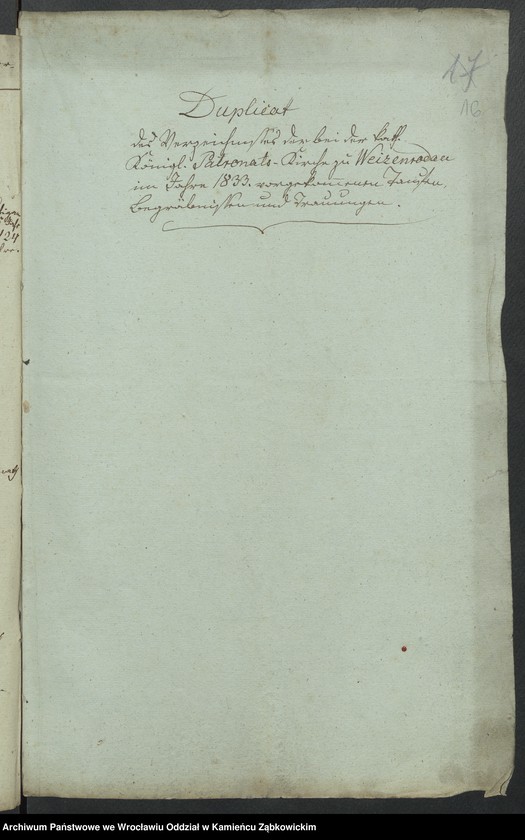 17
16
Duplicat
des Verzeichnisses der bei der kath.
Königl. Patronats-Kirche zu Weizenrodau
im Jahre 1833. vorgekommenen Taufen,
Begräbnissen und Trauungen.
124
Archiwum Państwowe we Wrocławiu Oddział w Kamieńcu Ząbkowickim